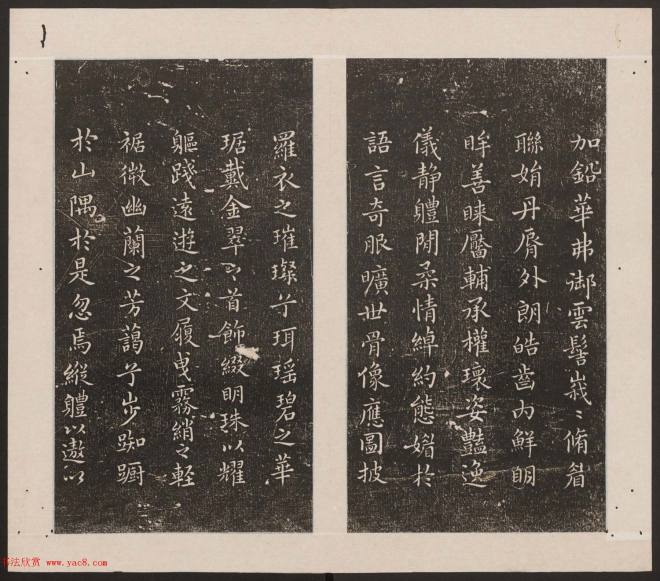 加鉛華弗御雲髻峩〻脩眉
聯娟丹脣外朗皓齒內鮮明
眸善睞靨輔承權瓌姿豔逸
儀静軆閒柔情綽約態媚於
語言奇服曠世骨像應圖披
羅衣之璀璨兮珥瑶碧之華
琚戴金翠之首飾綴明珠以耀
軀踐遠遊之文履曳霧綃之輕
裾微幽蘭之芳藹兮步踟蹰
於山隅於是忽焉縱軆以遨以
书法欣赏 www.yac8.com